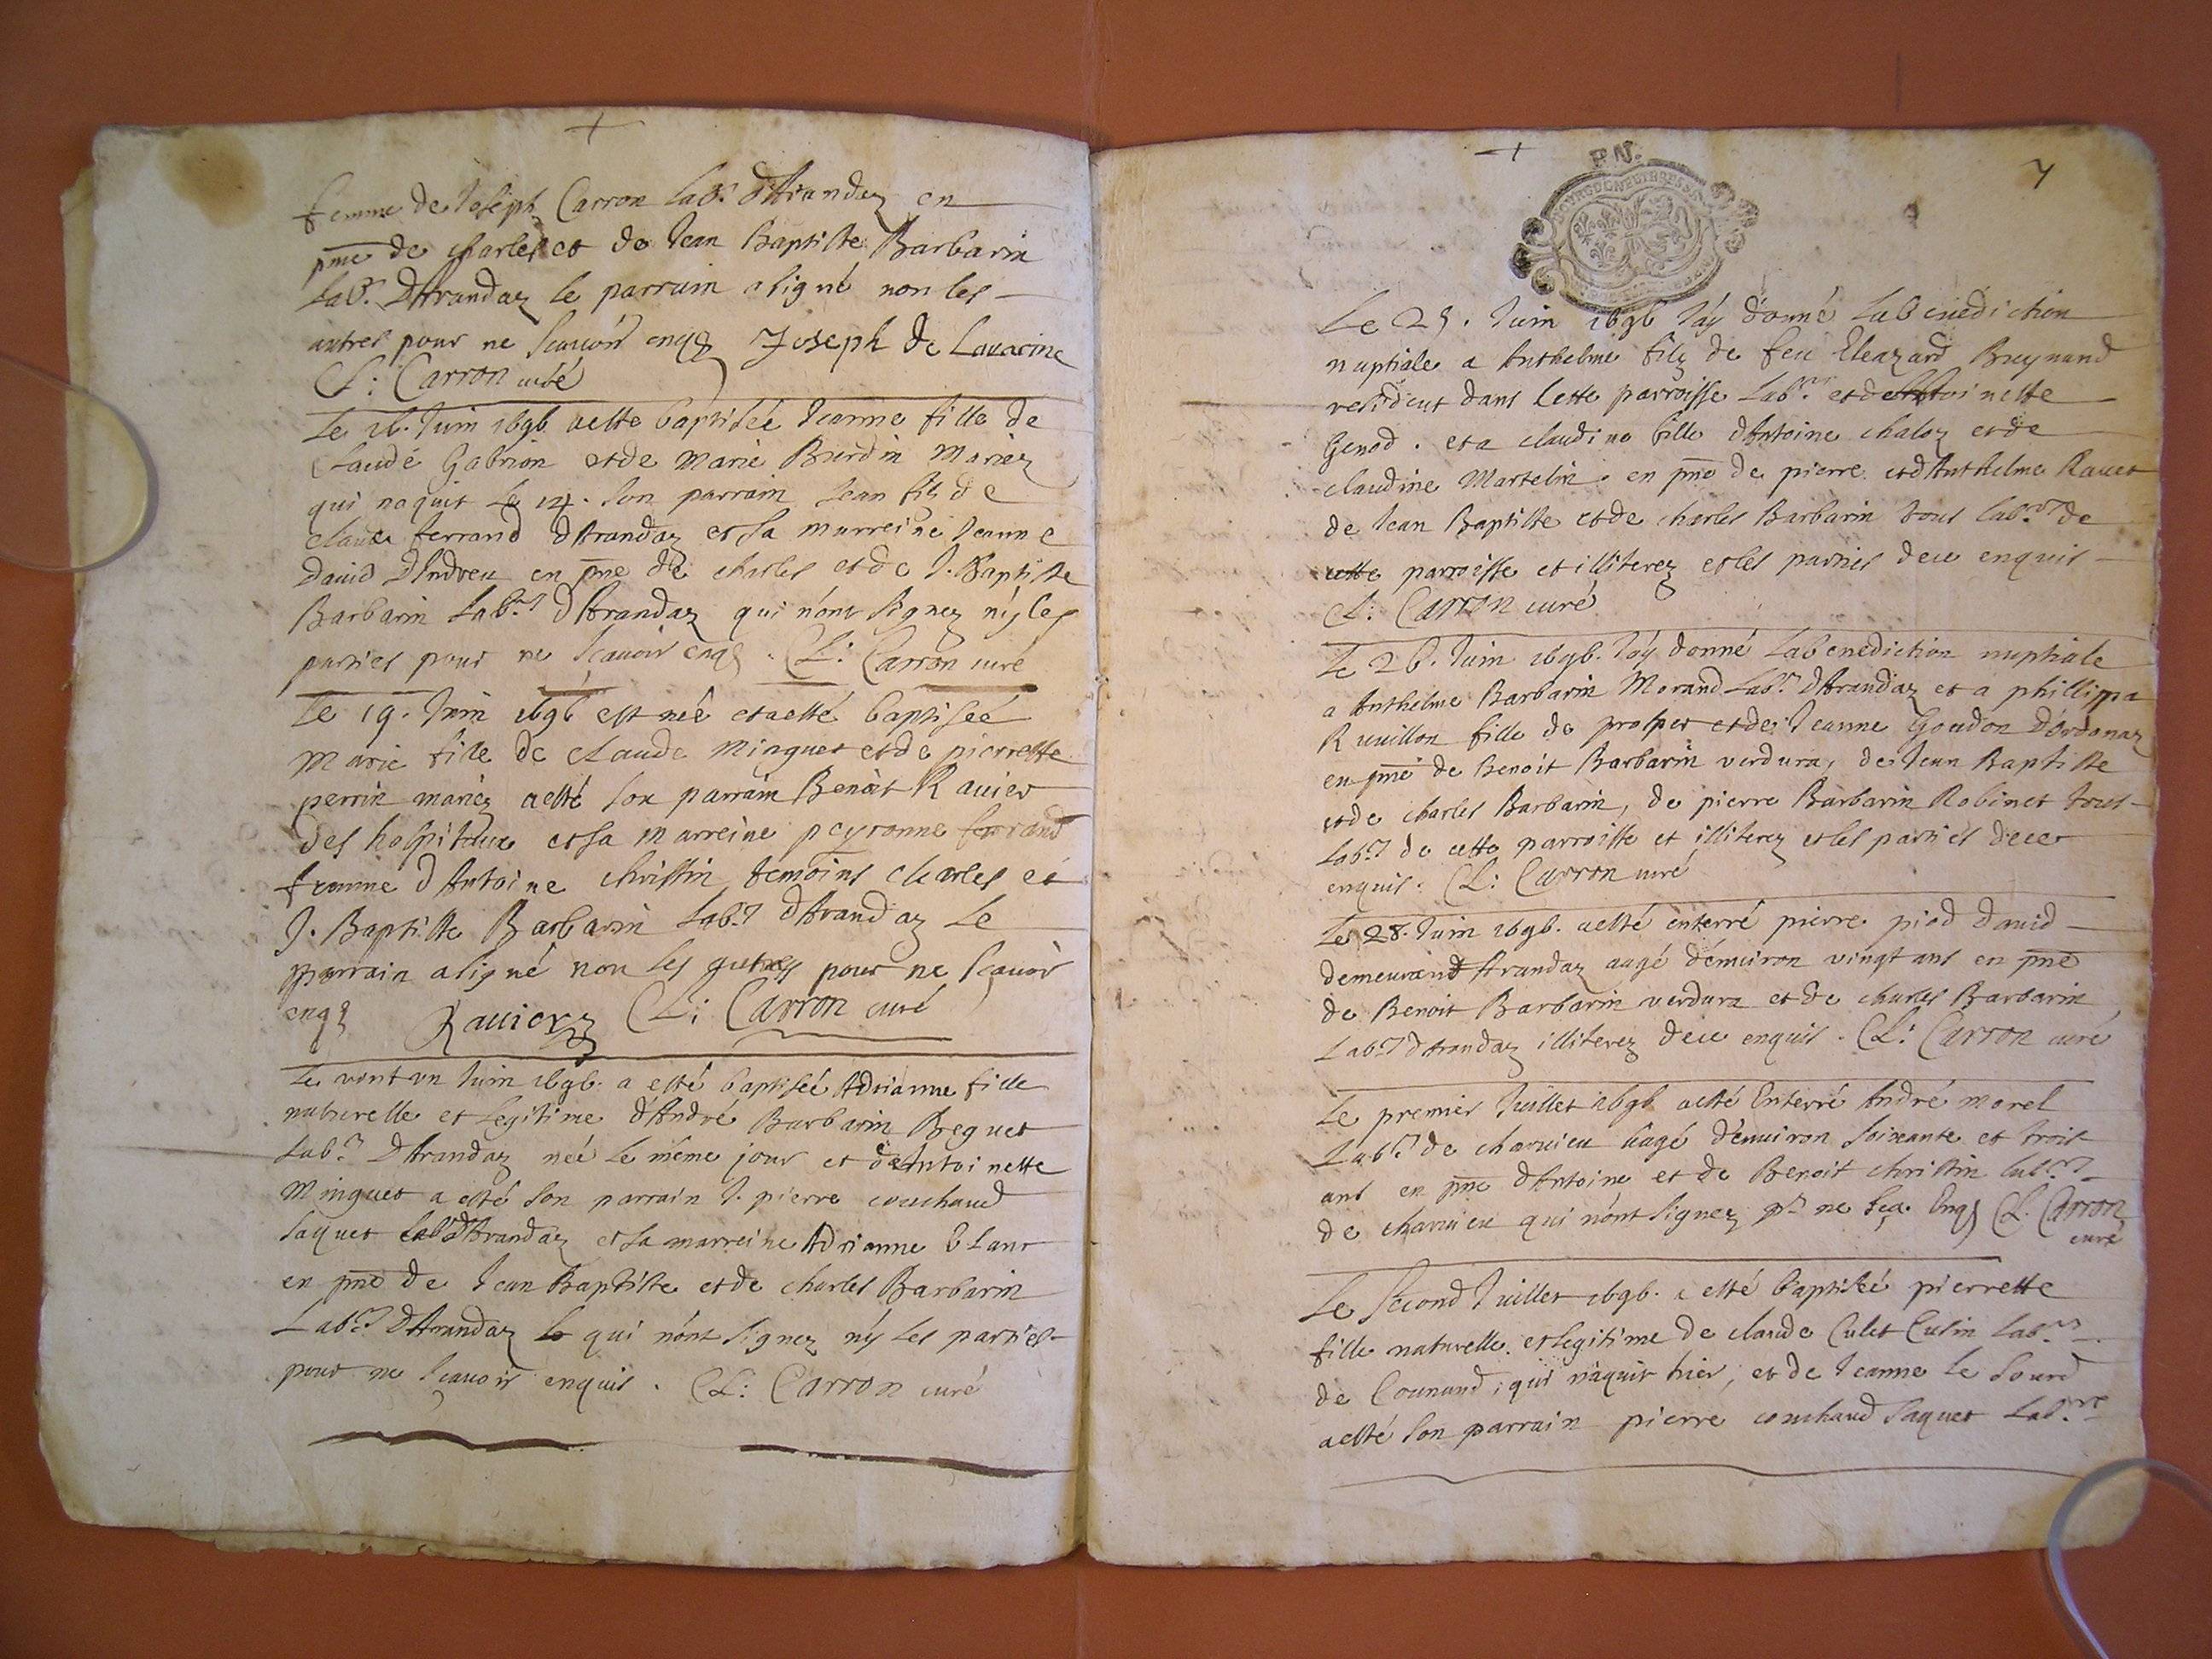 femme de Joseph Carron labr. d'Arandaz en
pnce de charles et de Jean Baptiste Barbarin
labrs. d'Arandaz le parrain a signé non les
autres pour ne scavoir enqs Joseph de Lauarine
Cl: Carron curé
Le 16. Juin 1696 a esté baptiseé Jeanne fille de
Claude Gabrion et de Marie Burdin Mariez
qui naquit le 14. son parrain Jean fils de
claude ferrand d'Arandaz et sa marreine Jeanne
David d'Indreu en pnce de charles et de J. Baptiste
Barbarin labrs d'Arandaz qui n'ont signez n'y les
parties pour ne scauoir enqs. Cl: Carron curé
Le 19. Juin 1696 est neé et a esté baptiseé
Marie fille de claude Minguet et de pierrette
perrin mariez a esté son parrain Benoit Rauier
des hospitaux et sa marreine peyronne ferrand
femme d'Antoine christin temoins charles et
J. Baptiste Barbarin labrs d'Arandaz le
parrain a signé non les autres pour ne scauoir
enqs Rauier Cl: Carron curé
Le vint vn Juin 1696. a esté baptiseé Adrianne fille
naturelle et legitime d'André Barbarin Beguet
labr. d'Arandaz neé le même jour et d'Antoinette
Minguet a esté son parrain J. pierre couchaud
Jaquet labr d'Arandaz et sa marreine Adrianne blanc
en pnce de Jean Baptiste et de charles Barbarin
Labrs d'Arandaz qui n'ont signez n'y les parties
pour ne scauoir enquis. Cl: Carron curé
PN.
7
Le 25. Juin 1696 J'ay donné la benediction
nuptiale a Anthelme filz de feu Eleazard Breynand
resident dans cette parroisse labr. et d'Antoinette
Genod. et a claudine fille d'Antoine chaloz et de
claudine Martelin. en pnce de pierre et d'Anthelme Rauet
de Jean Baptiste et de charles Barbarin tous labrs de
cette parroisse et illiterez et les parties de ce enquis
Cl: Carron curé
Le 26. Juin 1696. J'ay donné la benediction nuptiale
a Anthelme Barbarin Morand labr. d'Arandaz et a phillippa
Ruuillon fille de prosper et de Jeanne Goudon d'ordonaz
en pnce de Benoit Barbarin verdura, de Jean Baptiste
et de charles Barbarin, de pierre Barbarin Robinet tous
labrs de cette parroisse et illiterez et les parties de ce
enquis. Cl: Carron curé
Le 28. Juin 1696. a esté enterré pierre piod david
demeurant Arandaz aagé d'enuiron vingt ans en pnce
de Benoit Barbarin verdura et de charles Barbarin
Labrs d'Arandaz illiterez de ce enquis. Cl: Carron curé
Le premier Juillet 1696 a esté Enterré André morel
Labr. de charuieu aagé d'enuiron soixante et trois
ans en pnce d'Antoine et de Benoit christin labrs
de charuieu qui n'ont signez pr ne sça. Enqs Cl. Carron
curé
Le second Juillet 1696. a esté baptiseé pierrette
fille naturelle et legitime de claude Culet Cusin labr.
de Counand, qui naquit hier, et de Jeanne le sourd
a esté son parrain pierre couchaud Jaquet labr.